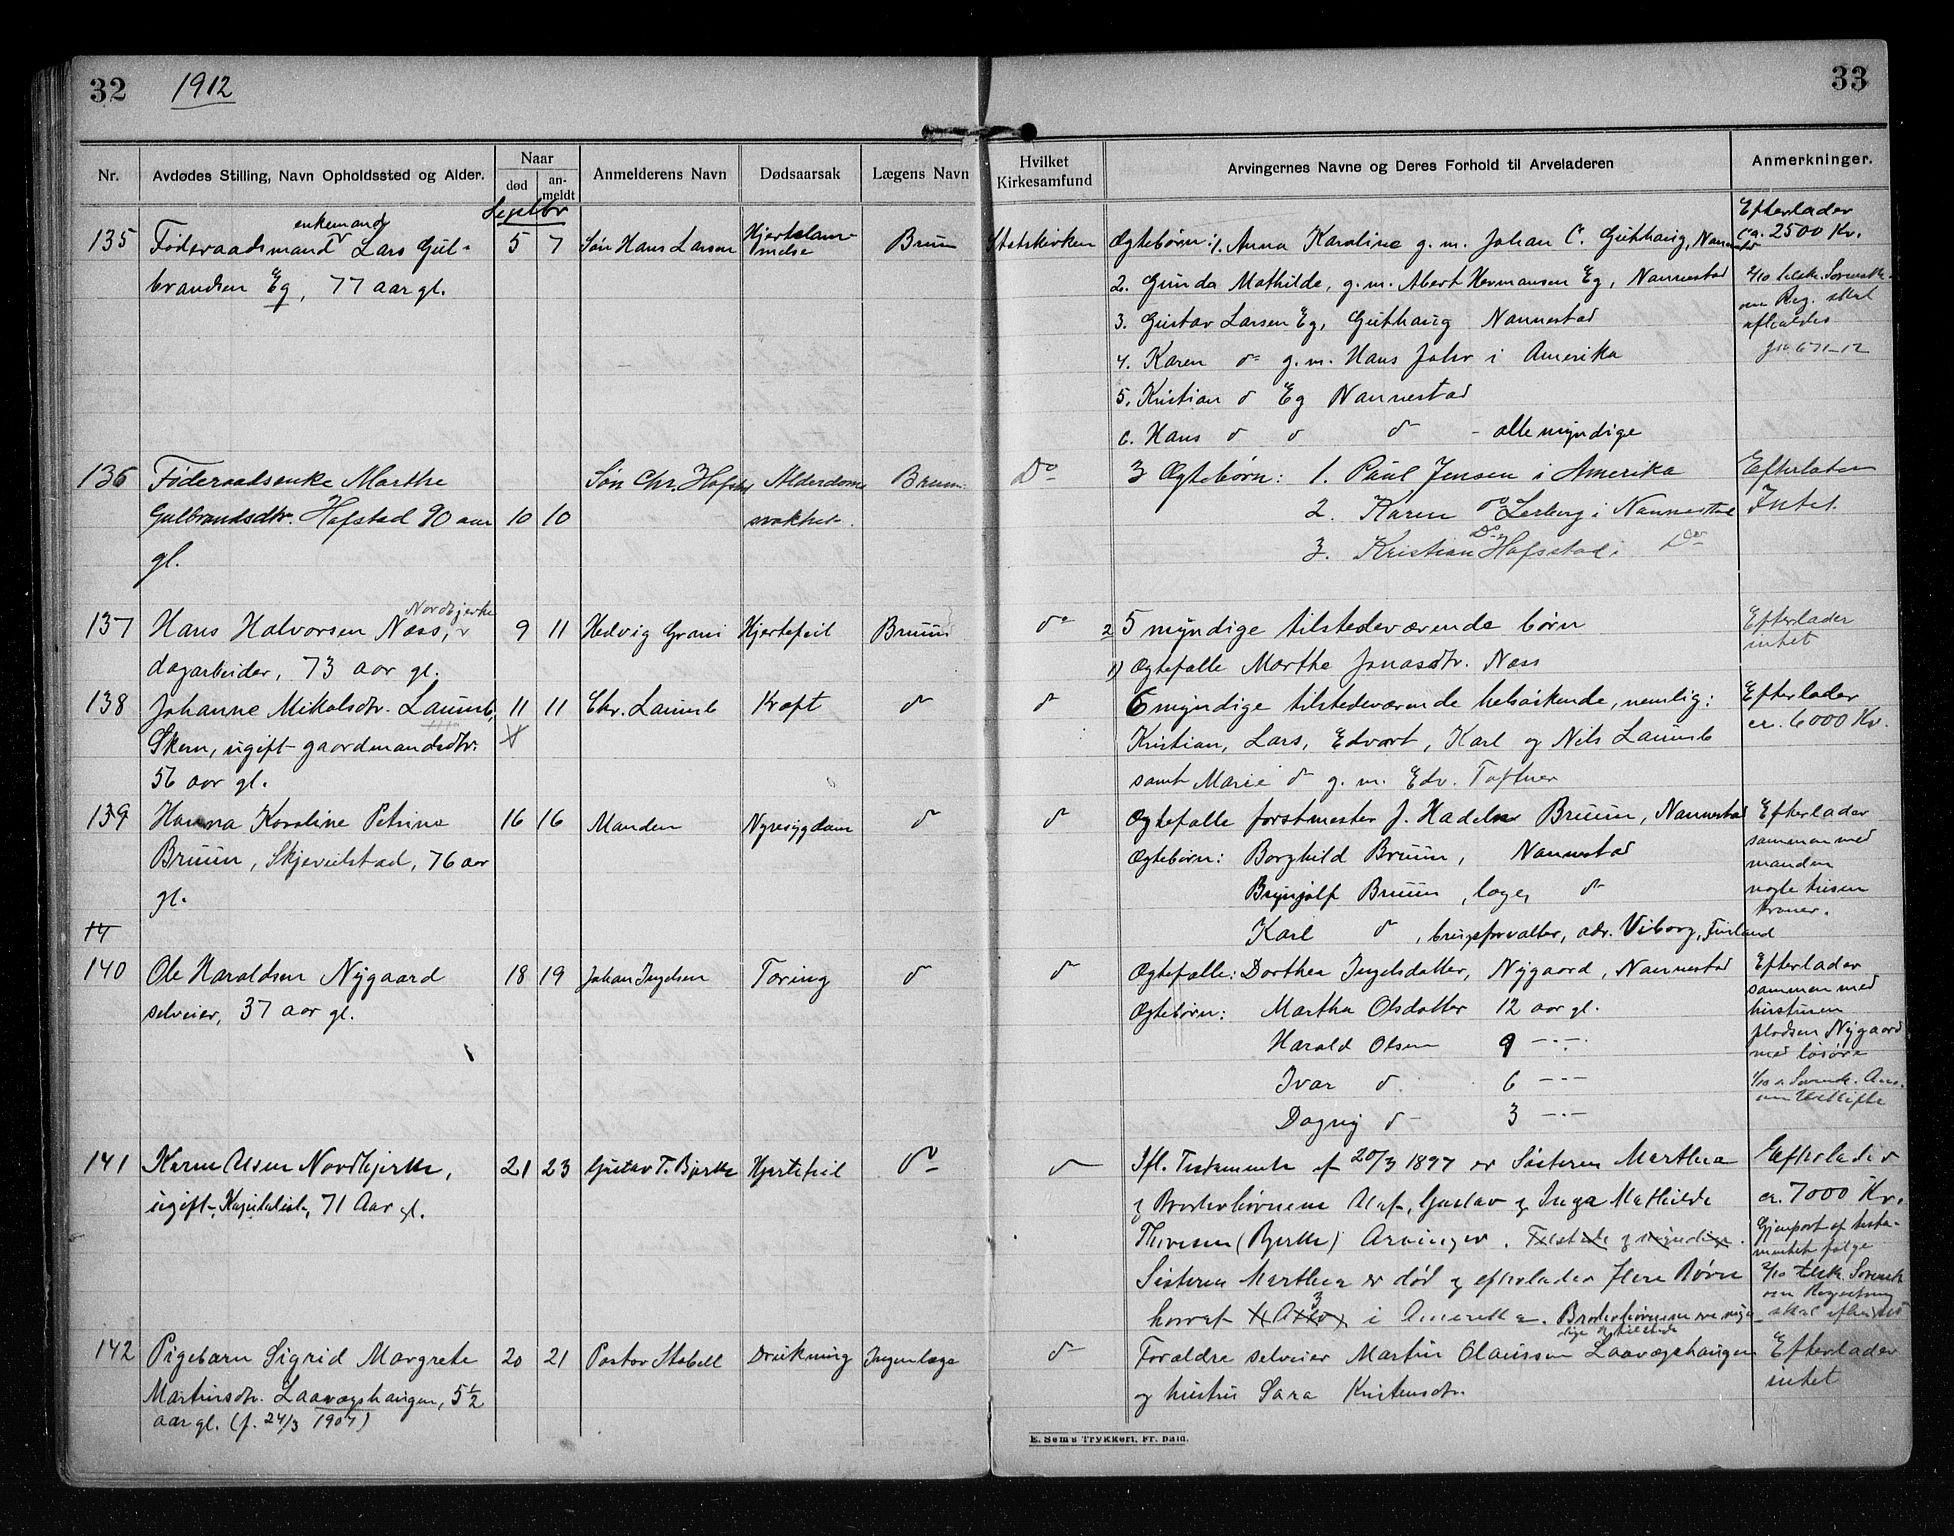 32 1912
33
Nr. Avdødes Stilling, Navn Opholdssted og Alder. Naar død an-meldt Anmelderens Navn Dødsaarsak Lægens Navn Hvilket Kirkesamfund Arvingernes Navne og Deres Forhold til Arveladeren Anmerkninger.
Septbr
enkemand
135 Føderaadsmand Lars Gul- 5 7 Søn Hans Larsen Hjertelam- Bruun Statskirken Ægtebørn: 1. Anna Karoline g.m. Johan C. Guthaug, Nannestad Efterlader ca. 2500 Kr.
brandsen Eg, 77 aar gl. melse 2. Gunda Mathilde, g.m. Albert Hermansen Eg, Nannestad
3. Gustav Larsen Eg, Guthaug Nannestad
4. Karen do g.m. Hans Jahr i Amerika
om Reg. skal afholdes
5. Kristian do Eg Nannestad
6. Hans do do do - alle myndige
136 Føderaadsenke Marthe Søn Chr. Hofstad Alderdoms Bruun Do 3 Ægtebørn: 1. Paul Jensen i Amerika Efterlader
Gulbrandsdtr. Hofstad 90 aar 10 10 svakhet. 2. Karen do Lerberg i Nannestad Intet.
gl. 3. Kristian Do Hofstad i Do
Nordbjerke
137 Hans Halvorsen Næss, 9 11 Hedvig Grani Hjertefeil Bruun do 2 5 myndige tilstedeværende børn Efterlader
dagarbeider, 73 aar gl. 1) Ægtefælle Marthe Jonasdtr. Næss intet
138 Johanne Mikalsdtr. Laumb, 11 11 Chr. Laumb Kræft do do 6 myndige tilstedeværende helsøskende, nemlig: Efterlader
Skem, ugift gaardmandsdtr. Kristian, Lars, Edvart, Karl og Nils Laumb ca. 6000 Kr.
56 aar gl. samt Marie do g.m. Edv. Toftner
139 Hanna Karoline Petrine 16 16 Manden Nyresygdom do do Ægtefælle forstmester J. Hadeln Bruun, Nannestad Efterlader
Bruun, Skjevelstad, 76 aar Ægtebørn: Borghild Bruun, Nannestad sammen med manden
gl. Brynjolf Bruun, læge, do nogle tusen kroner.
14 Karl do, brugsforvalter, adr. Viborg, Finland
140 Ole Haraldsen Nygaard 18 19 Johan Ingelsen Tæring do do Ægtefælle: Dorthea Ingelsdatter, Nygaard, Nannestad Efterlader
selveier, 37 aar gl. Ægtebørn: Martha Olsdatter 12 aar gl. sammen med hustruen
Harald Olsen 9 -"- pladsen Nygaard med løsøre
Ivar do. 6 -"-
Dagny do 3 -"-
141 Karen Olsen Nordbjerke, 21 23 Gustav T. Bjerke Hjertefeil do do Ifl. Testamente af 20/3 1897 er Søsteren Marthea Efterlader
ugift, Kapitalist, 71 Aar gl. og Broderbørnene Olaf, Gustav og Inga Mathilde ca. 7000 Kr.
Thoresen (Bjerke) Arvinger. Tilstede og myndige. Gjenpart af testamentet følge
Søsteren Marthea er død og efterlader flere Børn
hvoraf 3 i Amerika. Broderbørnene er myndige og tilstede
142 Pigebarn Sigrid Margrete 20 21 Pastor Stabell Drukning Ingen læge do Forældre selveier Martin Olaussen Laavøgshaugen Efterlader
Martinsdtr. Laavøgshaugen, 5½ og hustru Sara Kristensdtr. intet
aar gl. (f. 24/3 1907)
E. Sems Trykkeri, Fr. hald.